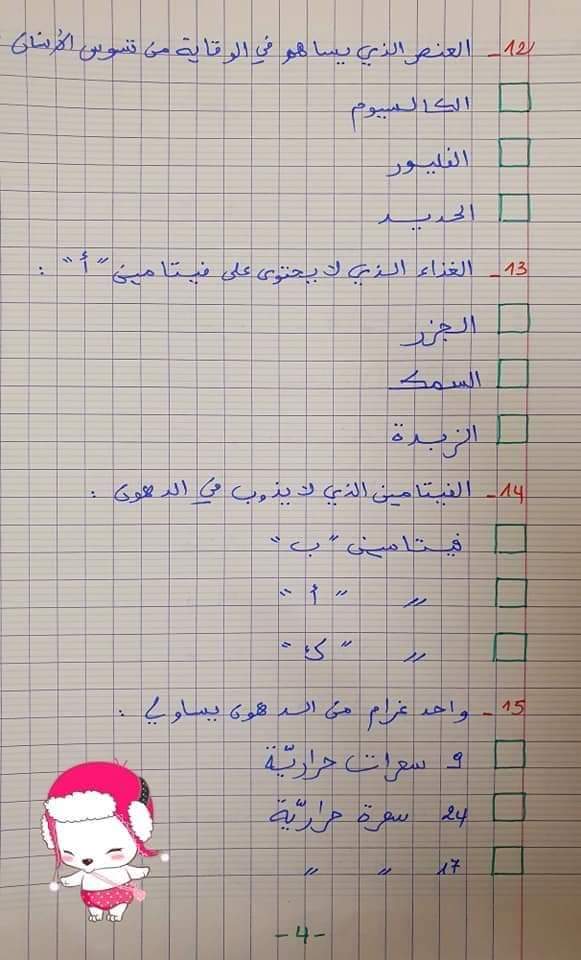 12- العنصر الذي يساهم في الوقاية من تسوس الأسنان
الكالسيوم
الفليور
الحديد
13- الغذاء الذي لا يحتوي على فيتامين "أ" :
الجزر
السمك
الزبدة
14- الفيتامين الذي لا يذوب في الدهون :
فيتامين "ب"
" "أ"
" "ك"
15- واحد غرام من الدهون يساوي :
9 سعرات حراريّة
24 سعرة حراريّة
17 " "
-4-